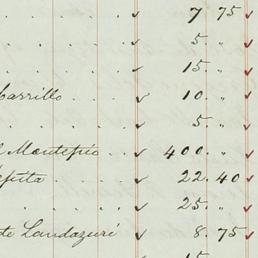 7 75
5. "
15. "
Carrillo . . 10. "
5. "
Montefrio . . 400. "
22. 40
25. "
te Landazuri 8. 75
15.